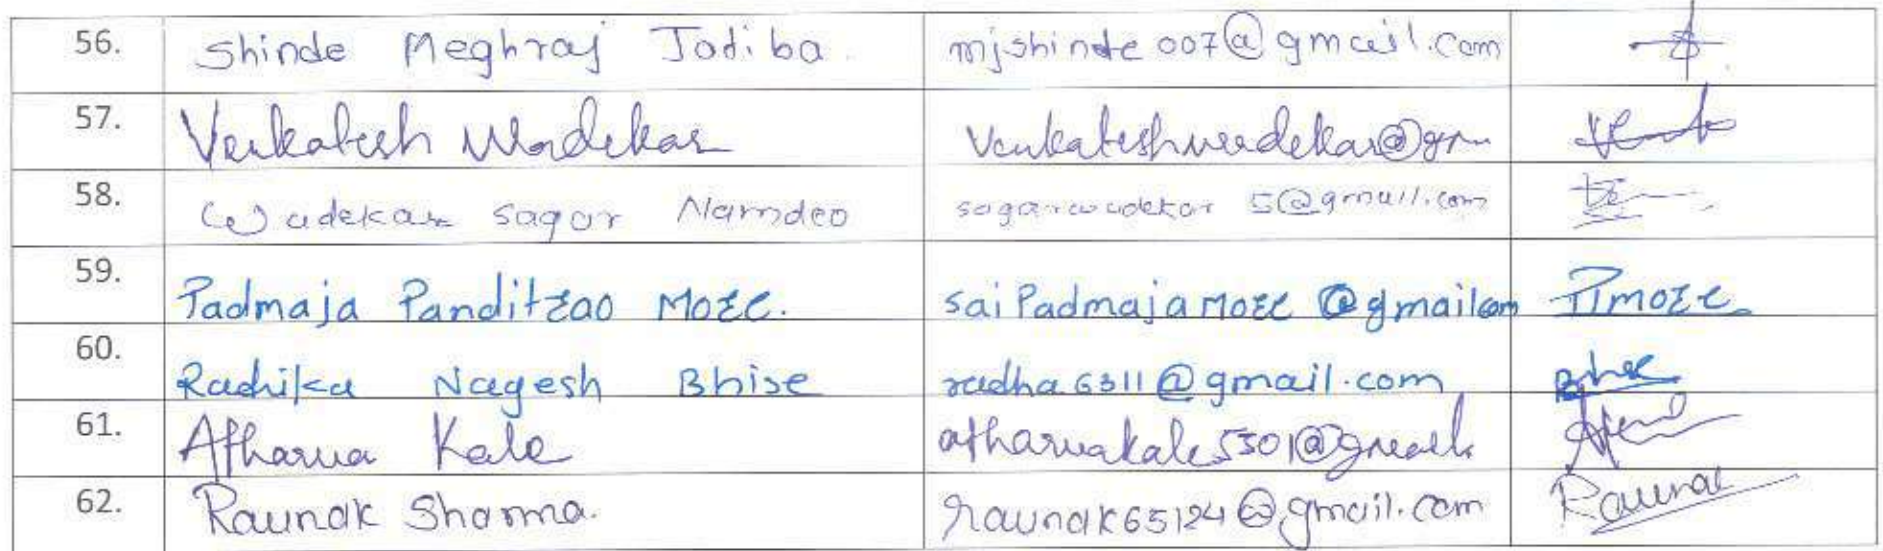 56. Shinde Meghraj Jotiba. mjshinde007@gmail.com
57. Venkatesh Wadekar Venkateshwadekar@gm
58. Wadekar sagar Namdeo sagarwadekar5@gmail.com
59. Padmaja Panditrao More. saiPadmajaMore@gmailcom PMore
60. Radhika Nagesh Bhise radha6311@gmail.com Bhise
61. Atharva Kale atharvakale5301@gmail.
62. Raunak Sharma. raunak65124@gmail.com Raunak